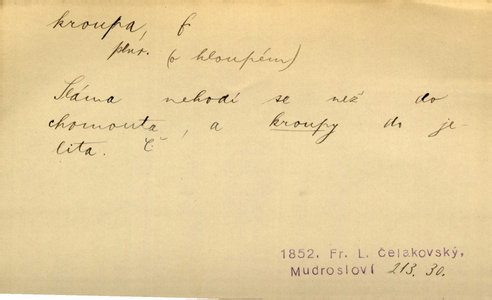 kroupa, f
plur. (o hloupém)
Sláma nehodí se než do
chomouta, a kroupy do je-
lita. Č
1852. Fr. L. Čelakovský,
Mudrosloví 213. 30.